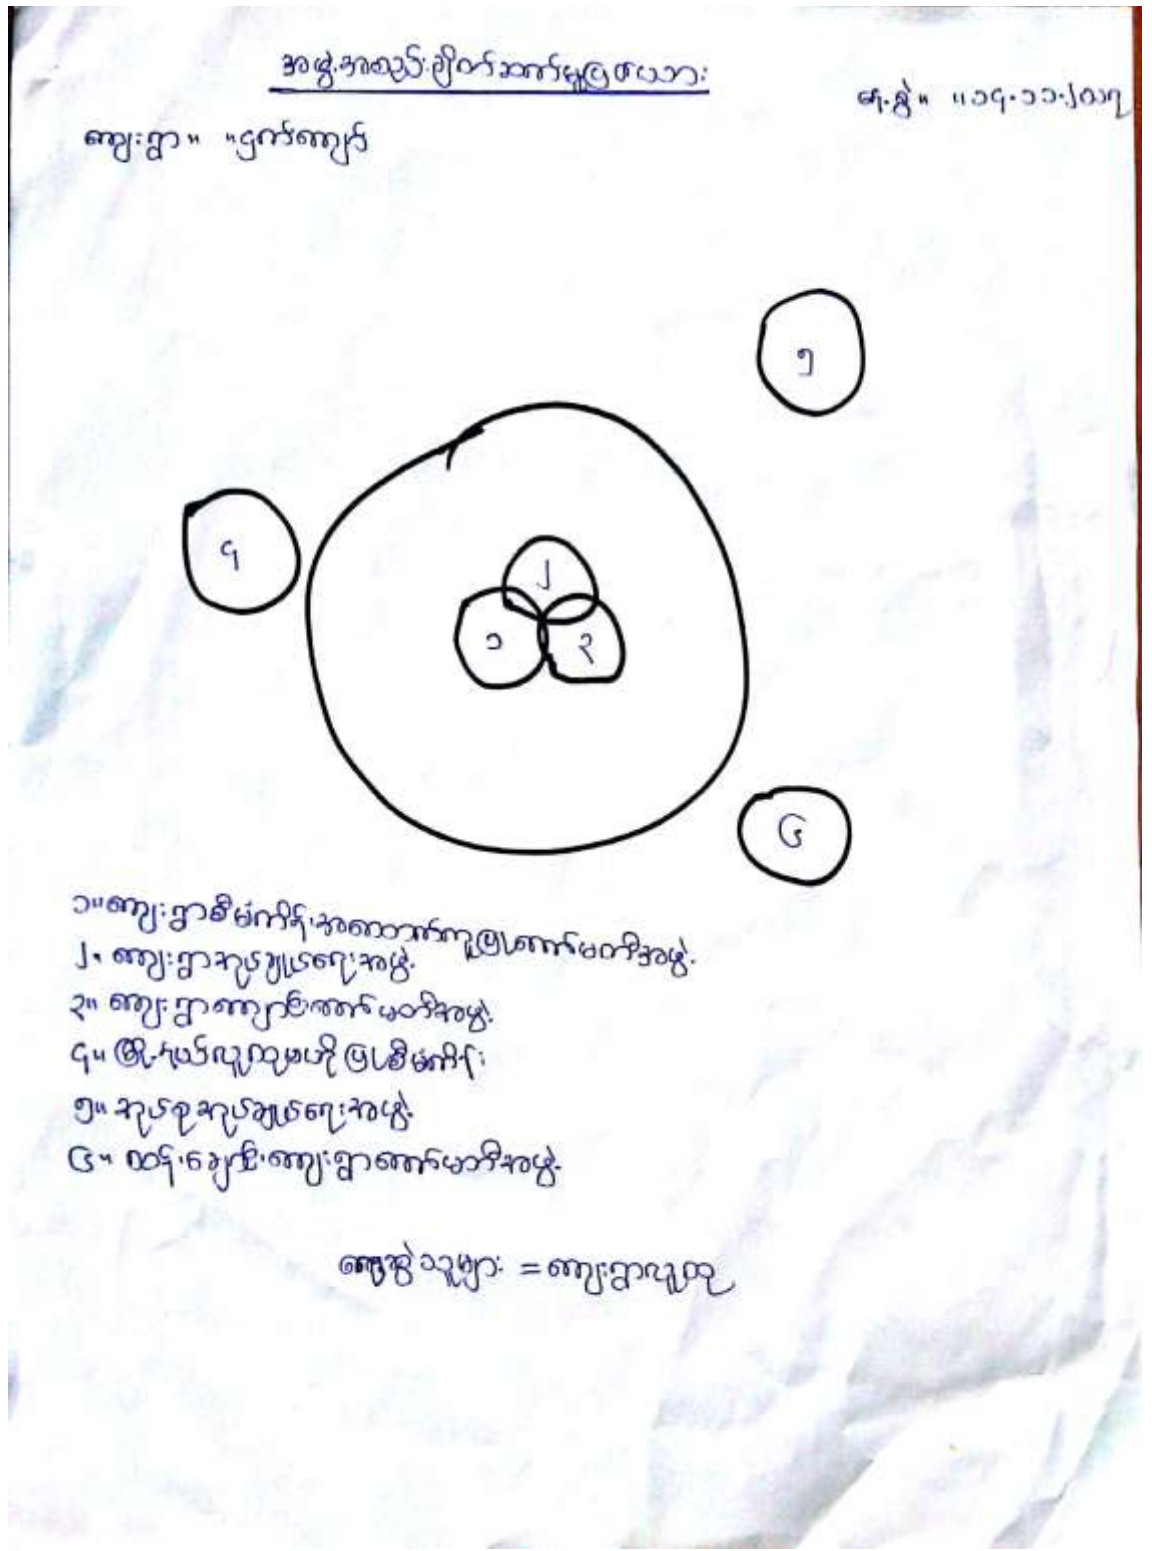 အဖွဲ့အစည်းချိတ်ဆက်မှုပြဇယား
နေ့စွဲ။ ။၁၄.၁၁.၂၀၁၇
ကျေးရွာ။ ။ငှက်ကျော်
၅
၄
၂
၁
၃
၆
၁။ ကျေးရွာစီမံကိန်းအထောက်ကူပြုကော်မတီအဖွဲ့
၂။ ကျေးရွာအုပ်ချုပ်ရေးအဖွဲ့
၃။ ကျေးရွာကျောင်းကော်မတီအဖွဲ့
၄။ မြို့နယ်လူထုဗဟိုပြုစီမံကိန်း
၅။ အုပ်စုအုပ်ချုပ်ရေးအဖွဲ့
၆။ ထန်းချောင်းကျေးရွာကော်မတီအဖွဲ့
ရေးဆွဲသူများ = ကျေးရွာလူထု